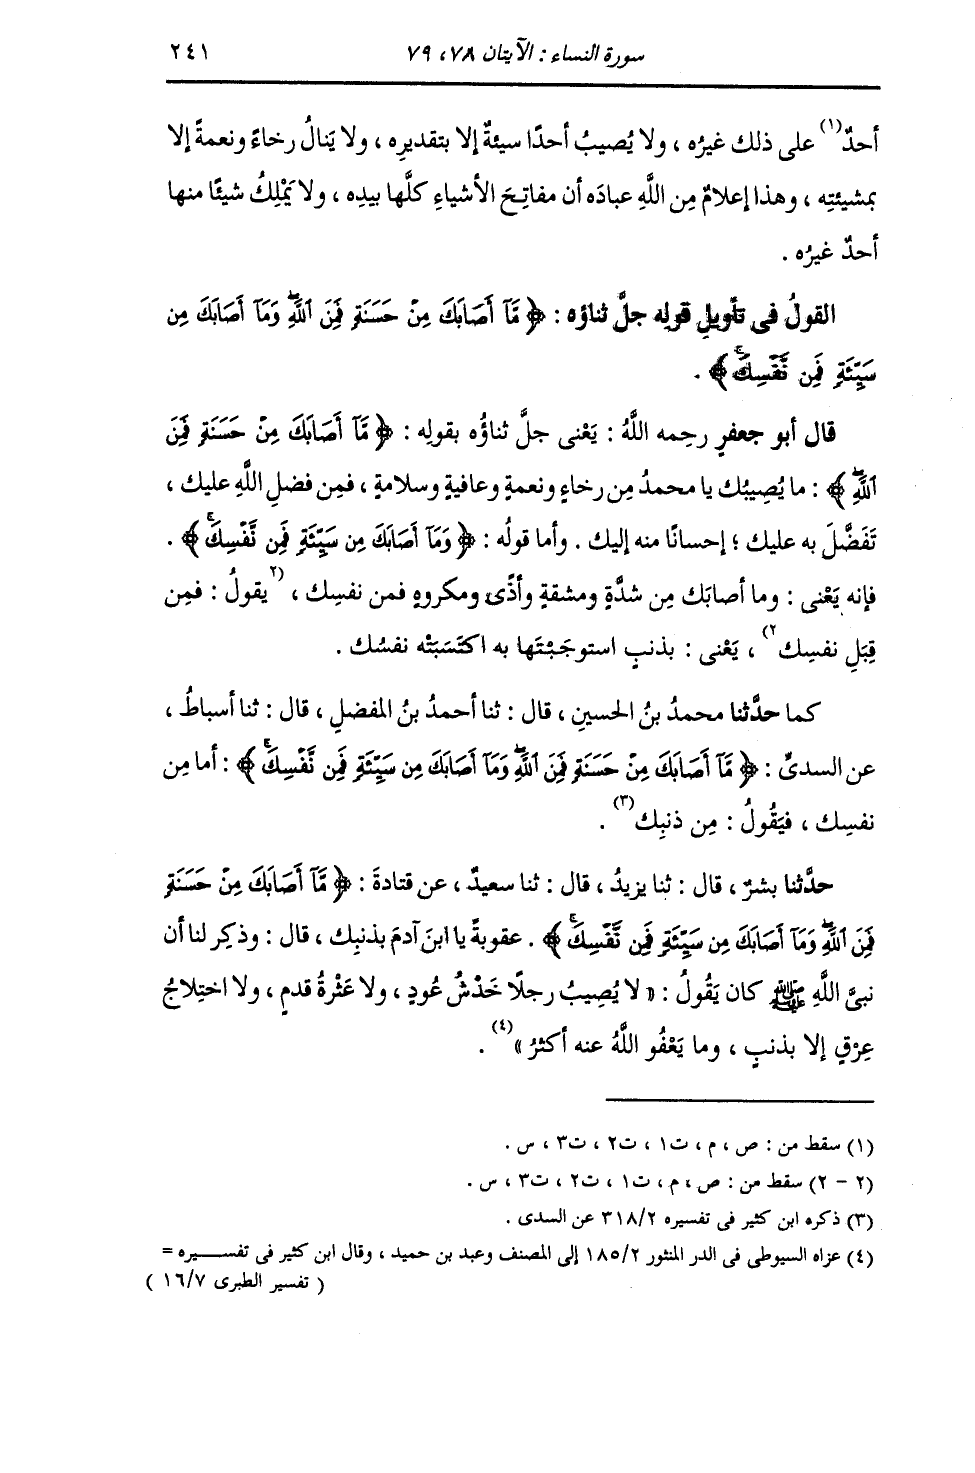 سورة النساء : الآيتان ٧٨، ٧٩ ٢٤١
أحدٌ(١) على ذلك غيرُه ، ولا يُصيبُ أحدًا سيئةٌ إلا بتقديرِه ، ولا يَنالُ رخاءً ونعمةً إلا
بمشيئتِه ، وهذا إعلامٌ مِن اللَّهِ عبادَه أن مفاتِحَ الأشياءِ كلَّها بيدِه ، ولا يَمْلِكُ شيئًا منها
أحدٌ غيرُه .
القولُ فى تأويلِ قولِه جلَّ ثناؤه : ﴿ مَّآ أَصَابَكَ مِنْ حَسَنَةٍ فَمِنَ ٱللَّهِۖ وَمَآ أَصَابَكَ مِن
سَيِّئَةٍ فَمِن نَّفْسِكَۚ ﴾ .
قال أبو جعفرٍ رحِمه اللَّهُ : يَعْنى جلَّ ثناؤُه بقولِه : ﴿ مَّآ أَصَابَكَ مِنْ حَسَنَةٍ فَمِنَ
ٱللَّهِۖ ﴾ : ما يُصِيبُك يا محمدُ مِن رخاءٍ ونعمةٍ وعافيةٍ وسلامةٍ ، فمِن فضلِ اللَّهِ عليك ،
تَفَضَّلَ به عليك ؛ إحسانًا منه إليك . وأما قولُه : ﴿ وَمَآ أَصَابَكَ مِن سَيِّئَةٍ فَمِن نَّفْسِكَۚ ﴾ .
فإنه يَعْنى : وما أصابَك مِن شدَّةٍ ومشقةٍ وأذًى ومكروهٍ فمن نفسِك ، (٢يقولُ : فمِن
قِبَلِ نفسِك٢) ، يَعْنى : بذنبٍ استوجَبْتَها به اكتَسَبَتْه نفسُك .
كما حدَّثنا محمدُ بنُ الحسينِ ، قال : ثنا أحمدُ بنُ المفضلِ ، قال : ثنا أسباطُ ،
عن السدىِّ : ﴿ مَّآ أَصَابَكَ مِنْ حَسَنَةٍ فَمِنَ ٱللَّهِۖ وَمَآ أَصَابَكَ مِن سَيِّئَةٍ فَمِن نَّفْسِكَۚ ﴾ : أما مِن
نفسِك ، فيَقُولُ : مِن ذنبِك(٣) .
حدَّثنا بشرٌ ، قال : ثنا يزيدُ ، قال : ثنا سعيدٌ ، عن قتادةَ : ﴿ مَّآ أَصَابَكَ مِنْ حَسَنَةٍ
فَمِنَ ٱللَّهِۖ وَمَآ أَصَابَكَ مِن سَيِّئَةٍ فَمِن نَّفْسِكَۚ ﴾ . عقوبةً يا ابنَ آدمَ بذنبِك ، قال : وذكِر لنا أن
نبىَّ اللَّهِ ﷺ كان يَقُولُ : « لا يُصِيبُ رجلًا خَدْشُ عُودٍ ، ولا عَثْرةُ قدمٍ ، ولا اختِلاجُ
عِرْقٍ إلا بذنبٍ ، وما يَعْفُو اللَّهُ عنه أكثرُ »(٤) .
(١) سقط من : ص ، م ، ت١ ، ت٢ ، ت٣ ، س .
(٢ - ٢) سقط من : ص ، م ، ت١ ، ت٢ ، ت٣ ، س .
(٣) ذكره ابن كثير فى تفسيره ٣١٨/٢ عن السدى .
(٤) عزاه السيوطى فى الدر المنثور ١٨٥/٢ إلى المصنف وعبد بن حميد ، وقال ابن كثير فى تفسـيره =
( تفسير الطبرى ١٦/٧ )